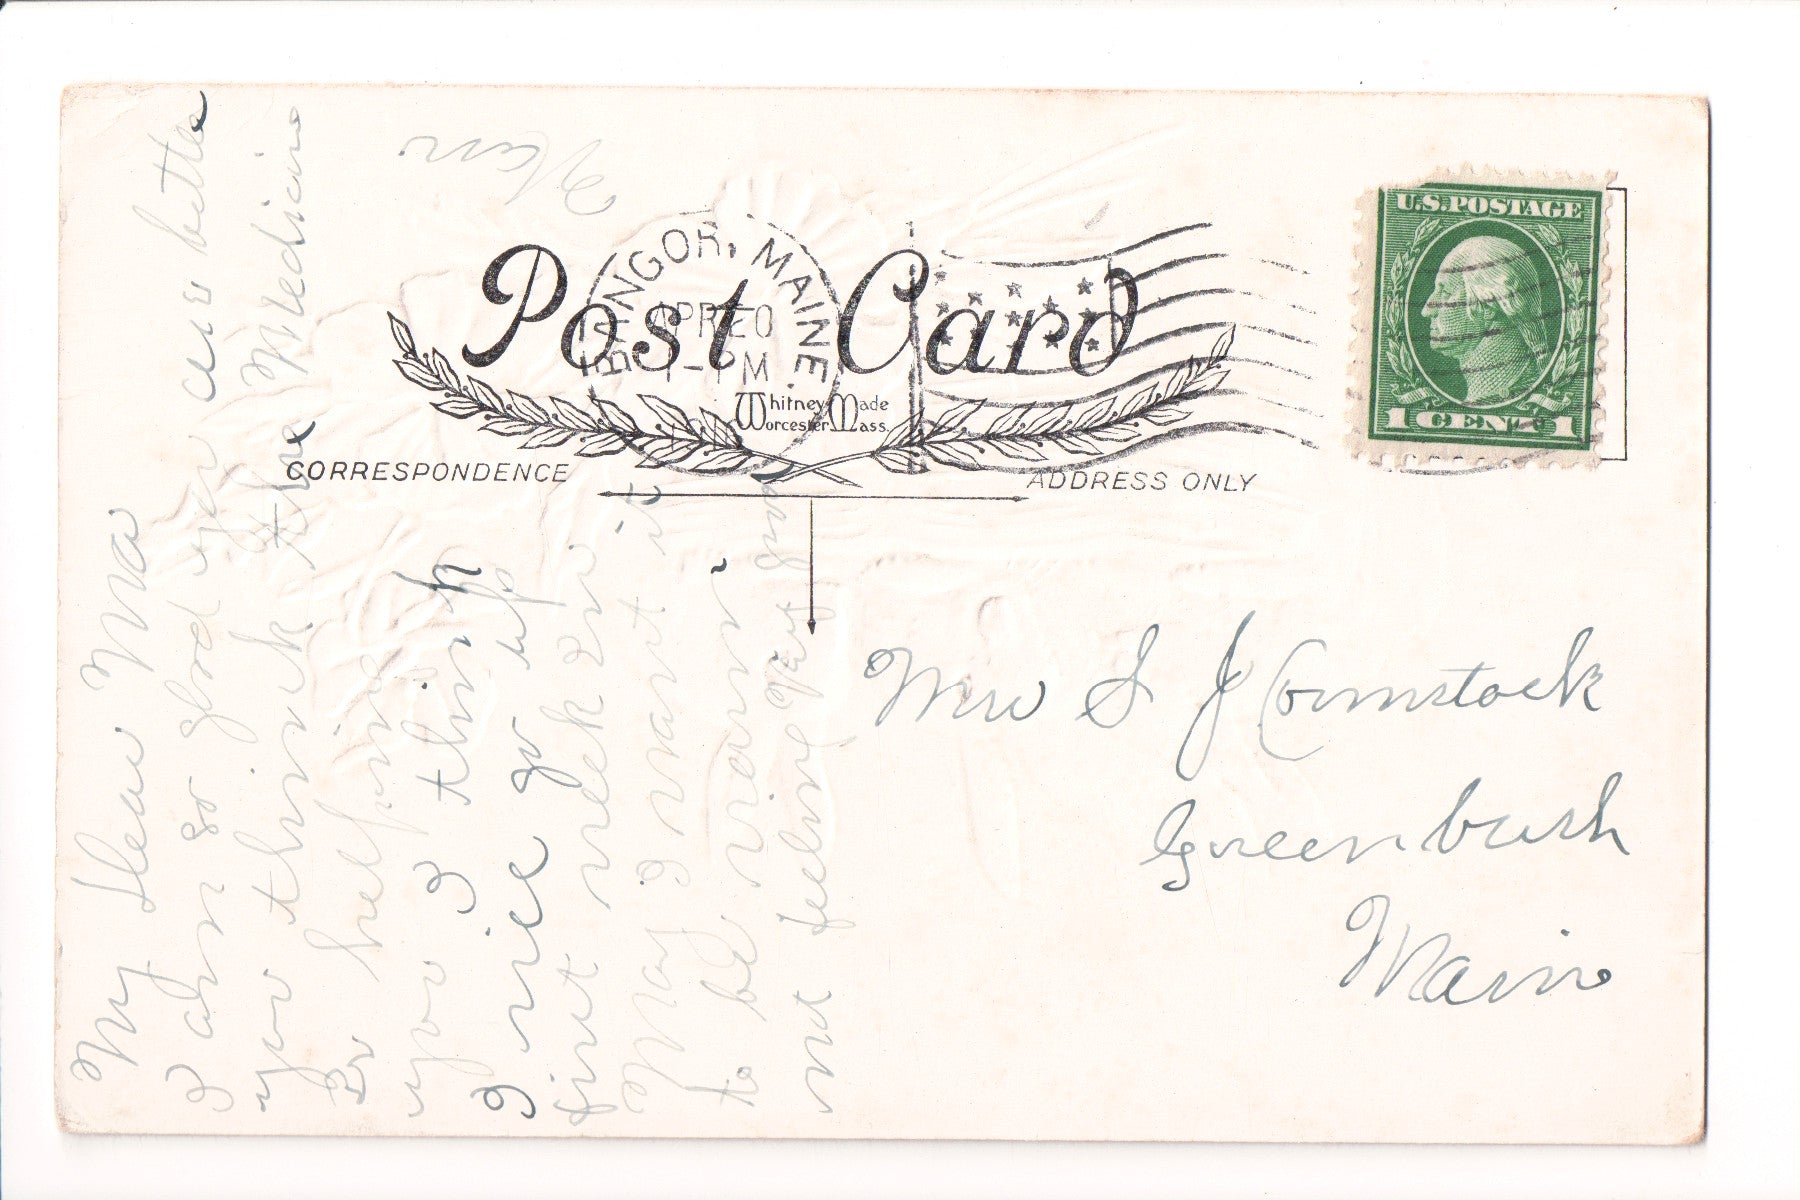 Post Card
BANGOR, MAINE.
APR 20
1-PM
Whitney Made
Worcester Mass.
U.S. POSTAGE
1 CENT 1
CORRESPONDENCE
ADDRESS ONLY
My Dear Ma
I am so glad you are better
you think the Medicine
is helping
you I think
I will go up
first week in
May I want it
to be warm
not feeling very good
Mrs S J Comstock
Greenbush
Maine